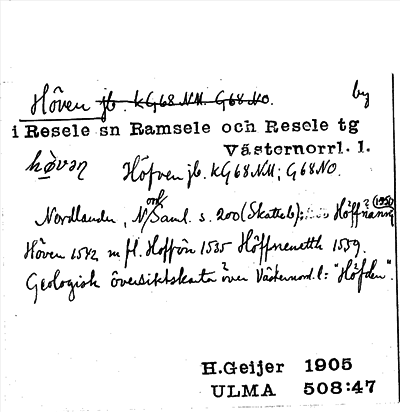 Höven jb. KG68NM. G68NO. by
i Resele sn Ramsele och Resele tg
Västernorrl. l.
Höfven jb. KG68NM; G68NO.
Nordlander, Saml. s. 200 (Skatteb);
Höven 1542 m fl. Hoffön 1535 1559.
Geologisk översiktskarta över Västernorl. l: "Höfden".
H.Geijer 1905
ULMA 508:47